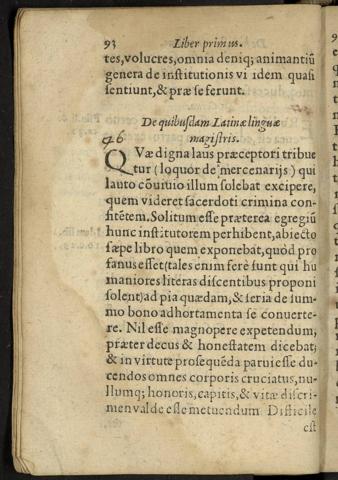 93 Liber primus.
tes, volucres, omnia deniq; animantiũ
genera de institutionis vi idem quasi
sentiunt, & præ se ferunt.
De quibusdam Latinæ linguæ
magistris.
26
QVæ digna laus præceptori tribue
tur (loquor de mercenarijs) qui
lauto cõuiuio illum solebat excipere,
quem videret sacerdoti crimina con-
fitẽtem. Solitum esse præterea egregiũ
hunc institutorem perhibent, abiecto
sæpe libro quem exponebat, quòd pro
fanus esset (tales enim ferè sunt qui hu
maniores literas discentibus proponi
solent) ad pia quædam, & seria de sum-
mo bono adhortamenta se conuerte-
re. Nil esse magnopere expetendum,
præter decus & honestatem dicebat;
& in virtute prosequẽda parui esse du-
cendos omnes corporis cruciatus, nu-
llumq; honoris, capitis, & vitæ discri-
men valde esse metuendum Difficile
est